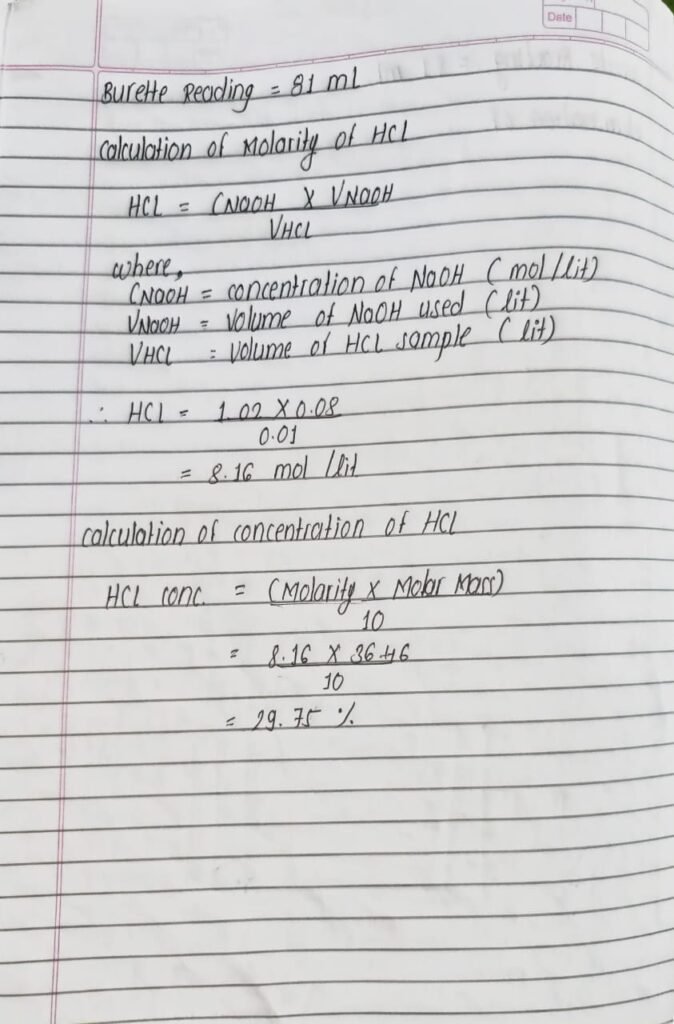 Date
Burette Reading = 81 ml
Calculation of Molarity of HCl
HCL = CNaOH X VNaOH
VHCL
where,
CNaOH = concentration of NaOH (mol/lit)
VNaOH = Volume of NaOH used (lit)
VHCL = Volume of HCL sample (lit)
∴ HCl = 1.02 X 0.08
0.01
= 8.16 mol/lit
Calculation of concentration of HCl
HCL conc. = (Molarity x Molar Mass)
10
= 8.16 X 36.46
10
= 29.75 %